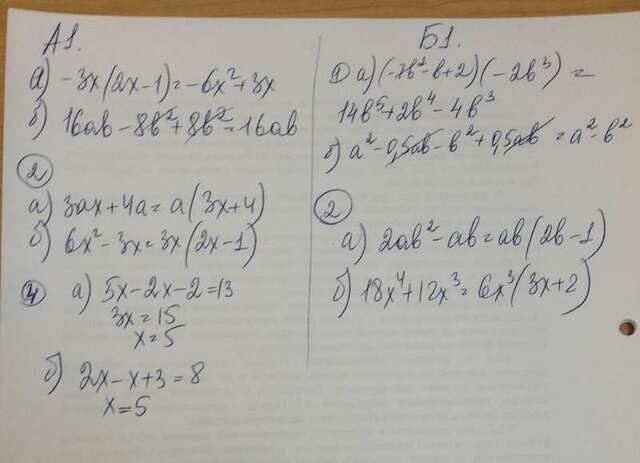 А1.
а) -3x(2x-1)=-6x²+3x
б) 16ab-8b²+8b²=16ab
2
а) 3ax+4a=a(3x+4)
б) 6x²-3x=3x(2x-1)
4 а) 5x-2x-2=13
3x=15
x=5
б) 2x-x+3=8
x=5
Б1.
1) а) (-7b²-b+2)(-2b³)=
14b⁵+2b⁴-4b³
б) a²-0,5ab-b²+0,5ab=a²-b²
2
а) 2ab²-ab=ab(2b-1)
б) 18x⁴+12x³=6x³(3x+2)